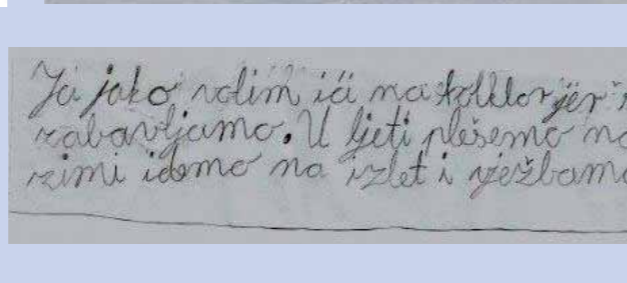 Ja jako volim ići na folklor jer
zabavljamo. U ljeti plešemo na
zimi idemo na izlet i vježbamo